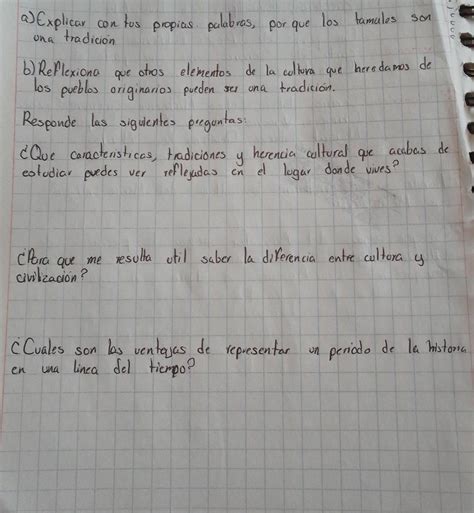 a) Explicar con tus propias palabras, por que los tamales son
una tradición
b) Reflexiona que otros elementos de la cultura que heredamos de
los pueblos originarios pueden ser una tradición.
Responde las siguientes preguntas:
¿Que caracteristicas, tradiciones y herencia cultural que acabas de
estudiar puedes ver reflejadas en el lugar donde vives?
¿Para que me resulta util saber la diferencia entre cultura y
civilización?
¿Cuales son las ventajas de representar un periodo de la historia
en una linea del tiempo?